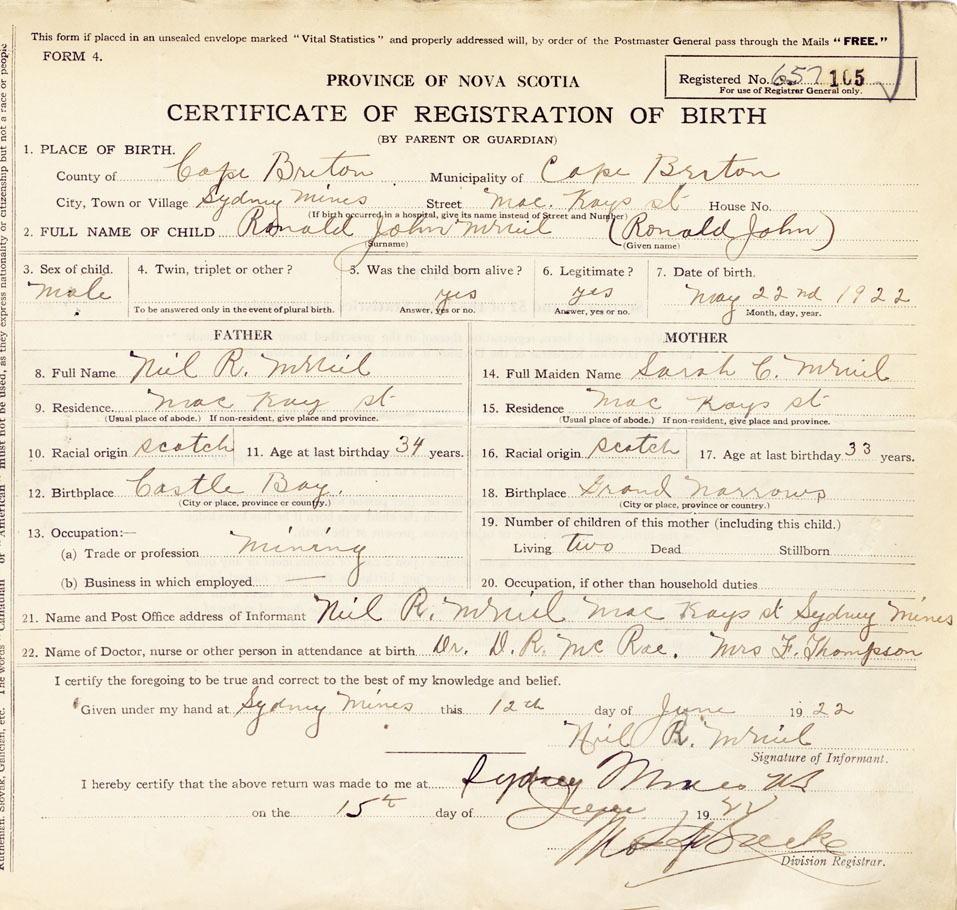 This form if placed in an unsealed envelope marked "Vital Statistics" and properly addressed will, by order of the Postmaster General pass through the Mails "FREE."
FORM 4.
PROVINCE OF NOVA SCOTIA
Registered No. 657 105
For use of Registrar General only.
CERTIFICATE OF REGISTRATION OF BIRTH
(BY PARENT OR GUARDIAN)
1. PLACE OF BIRTH.
County of Cape Breton Municipality of Cape Breton
City, Town or Village Sydny Mines Street Mac. Kays st House No.
(If birth occurred in a hospital, give its name instead of Street and Number)
2. FULL NAME OF CHILD Ronald John McNeil (Ronald John)
(Surname) (Given name)
3. Sex of child. 4. Twin, triplet or other? 5. Was the child born alive? 6. Legitimate? 7. Date of birth.
Male yes yes May 22nd 1922
To be answered only in the event of plural birth. Answer, yes or no. Answer, yes or no. Month, day, year.
FATHER MOTHER
8. Full Name Neil R. McNeil 14. Full Maiden Name Sarah C. McNeil
9. Residence Mac Kay st 15. Residence Mac Kays st
(Usual place of abode.) If non-resident, give place and province. (Usual place of abode.) If non-resident, give place and province.
10. Racial origin scotch 11. Age at last birthday 34 years. 16. Racial origin scotch 17. Age at last birthday 33 years.
12. Birthplace Castle Bay. 18. Birthplace Grand Narrows
(City or place, province or country.) (City or place, province or country.)
13. Occupation:— 19. Number of children of this mother (including this child.)
(a) Trade or profession Mining Living two Dead Stillborn
(b) Business in which employed — 20. Occupation, if other than household duties
21. Name and Post Office address of Informant Neil R. McNeil Mac Kays st Sydny Mines
22. Name of Doctor, nurse or other person in attendance at birth Dr. D. R. Mc Rae. Mrs F. Thompson
I certify the foregoing to be true and correct to the best of my knowledge and belief.
Given under my hand at Sydny Mines this 12th day of June 1922
Neil R. McNeil
Signature of Informant.
I hereby certify that the above return was made to me at Sydney Mines NS
on the 15th day of June 1922
Division Registrar.
Ruthenian, Slovak, Galician, etc. The words "Canadian" or "American" must not be used, as they express nationality or citizenship but not a race or people